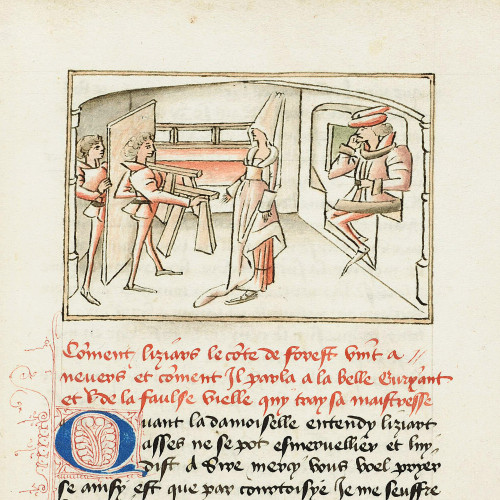 Coment liziars le côte de forest vint a
nevers et coment Il parla a la belle Euryant
et de la faulse vielle quy tray sa maistresse
Quant la damoiselle entendy liziart
asses ne se pot esmervellier et luy
dist a Sire mercy vous voel pryer
se ainsy est que par courtoisye Je me seuffre